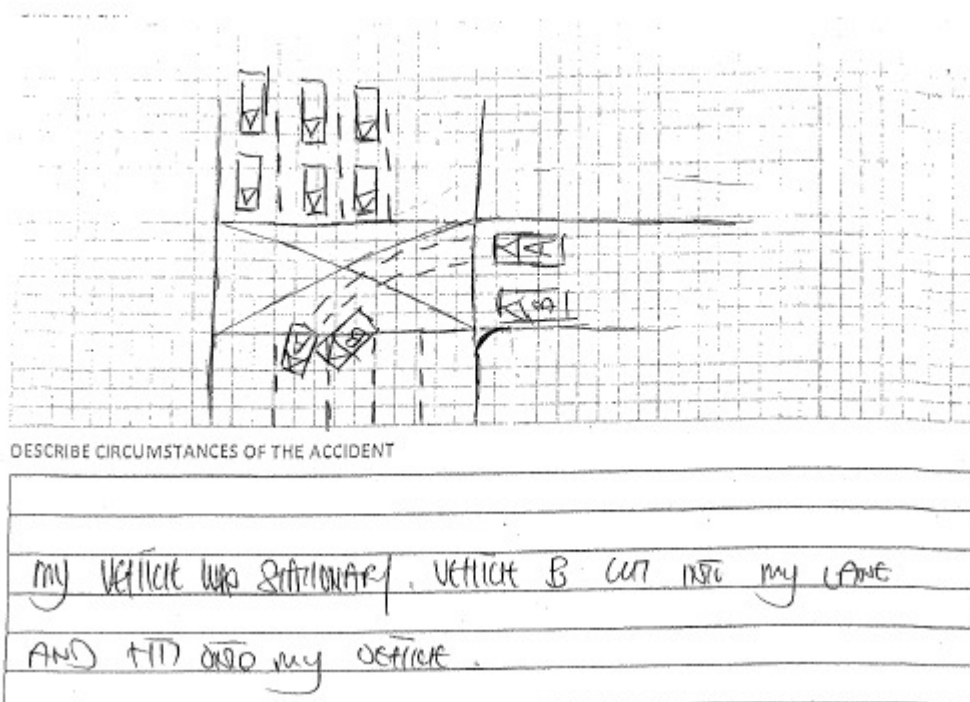 A
B
A
B
DESCRIBE CIRCUMSTANCES OF THE ACCIDENT
MY VEHICLE WAS STATIONARY. VEHICLE B CUT INTO MY LANE
AND HIT ONTO MY VEHICLE.